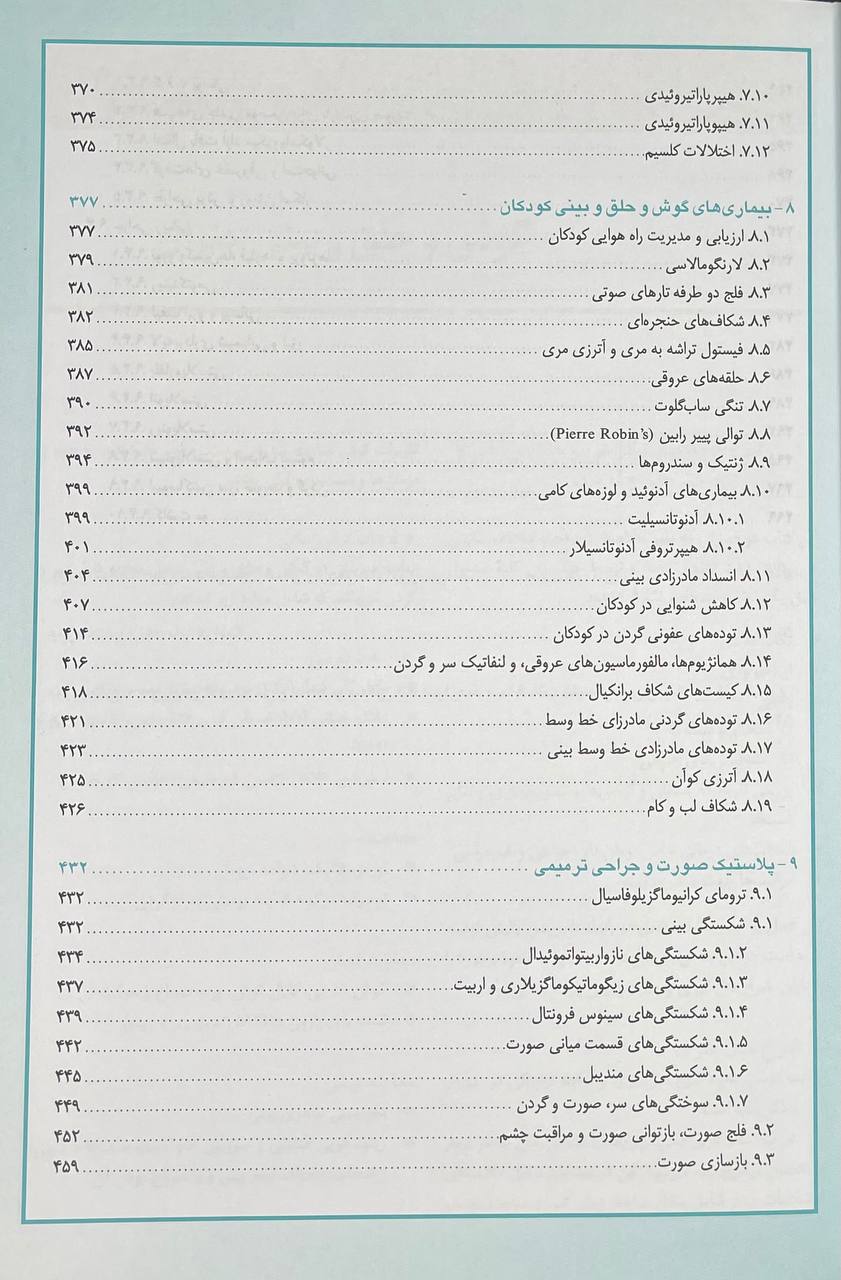 ۷.۱۰. هیپرپاراتیروئیدی ........ ۳۷۰
۷.۱۱. هیپوپاراتیروئیدی ........ ۳۷۴
۷.۱۲. اختلالات کلسیم ........ ۳۷۵
۸- بیماری‌های گوش و حلق و بینی کودکان ........ ۳۷۷
۸.۱. ارزیابی و مدیریت راه هوایی کودکان ........ ۳۷۷
۸.۲. لارنگومالاسی ........ ۳۷۹
۸.۳. فلج دو طرفه تارهای صوتی ........ ۳۸۱
۸.۴. شکاف‌های حنجره‌ای ........ ۳۸۲
۸.۵. فیستول تراشه به مری و آترزی مری ........ ۳۸۵
۸.۶. حلقه‌های عروقی ........ ۳۸۷
۸.۷. تنگی ساب‌گلوت ........ ۳۹۰
۸.۸. توالی پییر رابین (Pierre Robin’s) ........ ۳۹۲
۸.۹. ژنتیک و سندروم‌ها ........ ۳۹۴
۸.۱۰. بیماری‌های آدنوئید و لوزه‌های کامی ........ ۳۹۹
۸.۱۰.۱. آدنوتانسیلیت ........ ۳۹۹
۸.۱۰.۲. هیپرتروفی آدنوتانسیلار ........ ۴۰۱
۸.۱۱. انسداد مادرزادی بینی ........ ۴۰۴
۸.۱۲. کاهش شنوایی در کودکان ........ ۴۰۷
۸.۱۳. توده‌های عفونی گردن در کودکان ........ ۴۱۴
۸.۱۴. همانژیوم‌ها، مالفورماسیون‌های عروقی، و لنفاتیک سر و گردن ........ ۴۱۶
۸.۱۵. کیست‌های شکاف برانکیال ........ ۴۱۸
۸.۱۶. توده‌های گردنی مادرزای خط وسط ........ ۴۲۱
۸.۱۷. توده‌های مادرزادی خط وسط بینی ........ ۴۲۳
۸.۱۸. آترزی کوآن ........ ۴۲۵
۸.۱۹. شکاف لب و کام ........ ۴۲۶
۹- پلاستیک صورت و جراحی ترمیمی ........ ۴۳۲
۹.۱. ترومای کرانیوماگزیلوفاسیال ........ ۴۳۲
۹.۱. شکستگی بینی ........ ۴۳۲
۹.۱.۲. شکستگی‌های نازواربیتواتموئیدال ........ ۴۳۴
۹.۱.۳. شکستگی‌های زیگوماتیکوماگزیلاری و اربیت ........ ۴۳۷
۹.۱.۴. شکستگی‌های سینوس فرونتال ........ ۴۳۹
۹.۱.۵. شکستگی‌های قسمت میانی صورت ........ ۴۴۲
۹.۱.۶. شکستگی‌های مندیبل ........ ۴۴۵
۹.۱.۷. سوختگی‌های سر، صورت و گردن ........ ۴۴۹
۹.۲. فلج صورت، بازتوانی صورت و مراقبت چشم ........ ۴۵۲
۹.۳. بازسازی صورت ........ ۴۵۹